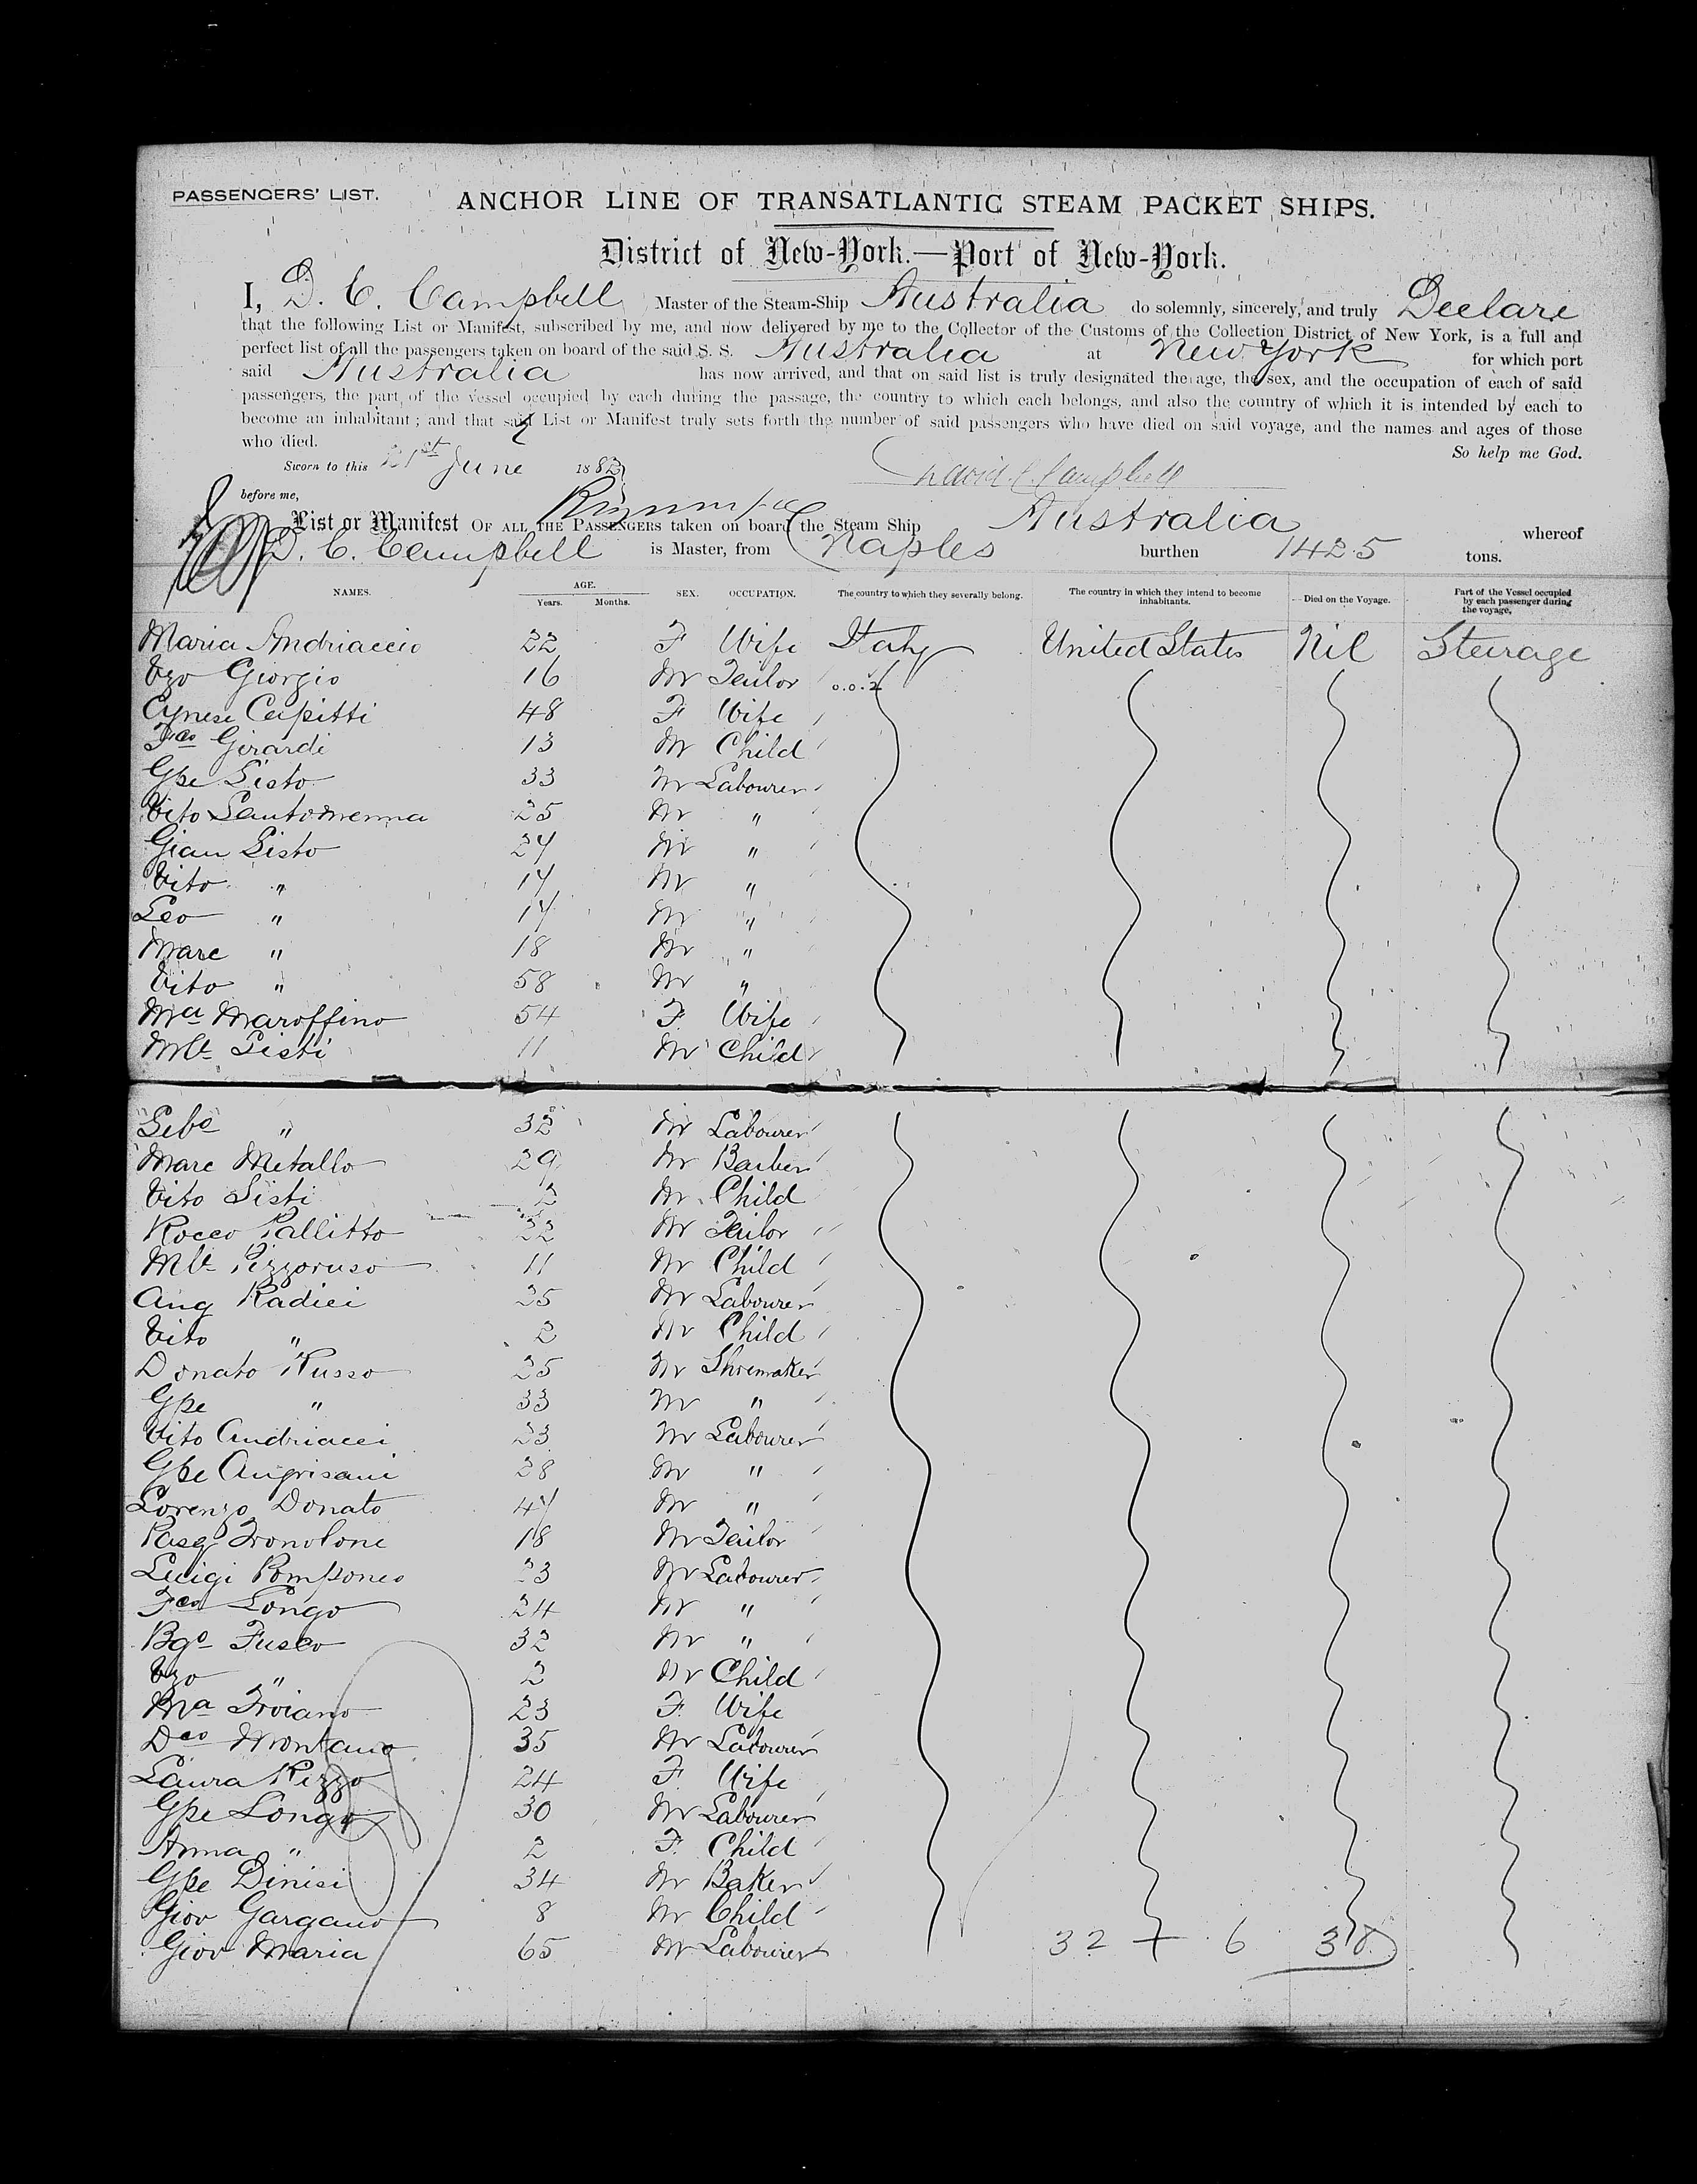 PASSENGERS' LIST.
ANCHOR LINE OF TRANSATLANTIC STEAM PACKET SHIPS.
District of New-York.—Port of New-York.
I, D. C. Campbell Master of the Steam-Ship Australia do solemnly, sincerely, and truly Declare
that the following List or Manifest, subscribed by me, and now delivered by me to the Collector of the Customs of the Collection District of New York, is a full and
perfect list of all the passengers taken on board of the said S. S. Australia at New York for which port
said Australia has now arrived, and that on said list is truly designated the age, the sex, and the occupation of each of said
passengers, the part of the vessel occupied by each during the passage, the country to which each belongs, and also the country of which it is intended by each to
become an inhabitant; and that said List or Manifest truly sets forth the number of said passengers who have died on said voyage, and the names and ages of those
who died. So help me God.
Sworn to this 21st June 1882 David C. Campbell
before me,
List or Manifest OF ALL THE PASSENGERS taken on board the Steam Ship Australia whereof
D. C. Campbell is Master, from Naples burthen 1425 tons.
NAMES. AGE. Years. Months. SEX. OCCUPATION. The country to which they severally belong. The country in which they intend to become inhabitants. Died on the Voyage. Part of the Vessel occupied by each passenger during the voyage.
Maria Andriaccio 22 F Wife Italy United States Nil Steerage
Vzo Giorgio 16 M Tailor
48 F Wife
Fco Girardi 13 M Child
Gpe Sisto 33 M Labourer
Vito Santomenna 25 M "
Gian Sisto 24 M "
Vito " 14 M "
Leo " 14 M "
Marc " 18 M "
Vito " 58 M "
Ma Maroffino 54 F Wife
Mle Sisti 11 M Child
Seba " 32 M Labourer
Marc Metallo 29 M Barber
Vito Sisti 2 M Child
Rocco Pallitto 22 M Tailor
Mle Pizzoruso 11 M Child
Ang Radici 35 M Labourer
Vito " 2 M Child
Donato Russo 25 M Shoemaker
Gpe " 33 M "
Vito Andriacci 23 M Labourer
Gpe Angrisani 28 M "
Lorenzo Donato 44 M "
Pasq Tronolone 18 M Tailor
Luigi Pomponeo 23 M Labourer
Fco Longo 24 M "
Bgo Fusco 32 M "
Vzo " 2 M Child
Ma Troiano 23 F. Wife
Dco Montano 35 M Labourer
Laura Rizzo 24 F. Wife
Gpe Longo 30 M Labourer
Anna " 2 F. Child
Gpe Dinisi 34 M Baker
Giov Gargano 8 M Child
Giov Maria 65 M Labourer 32 + 6 38